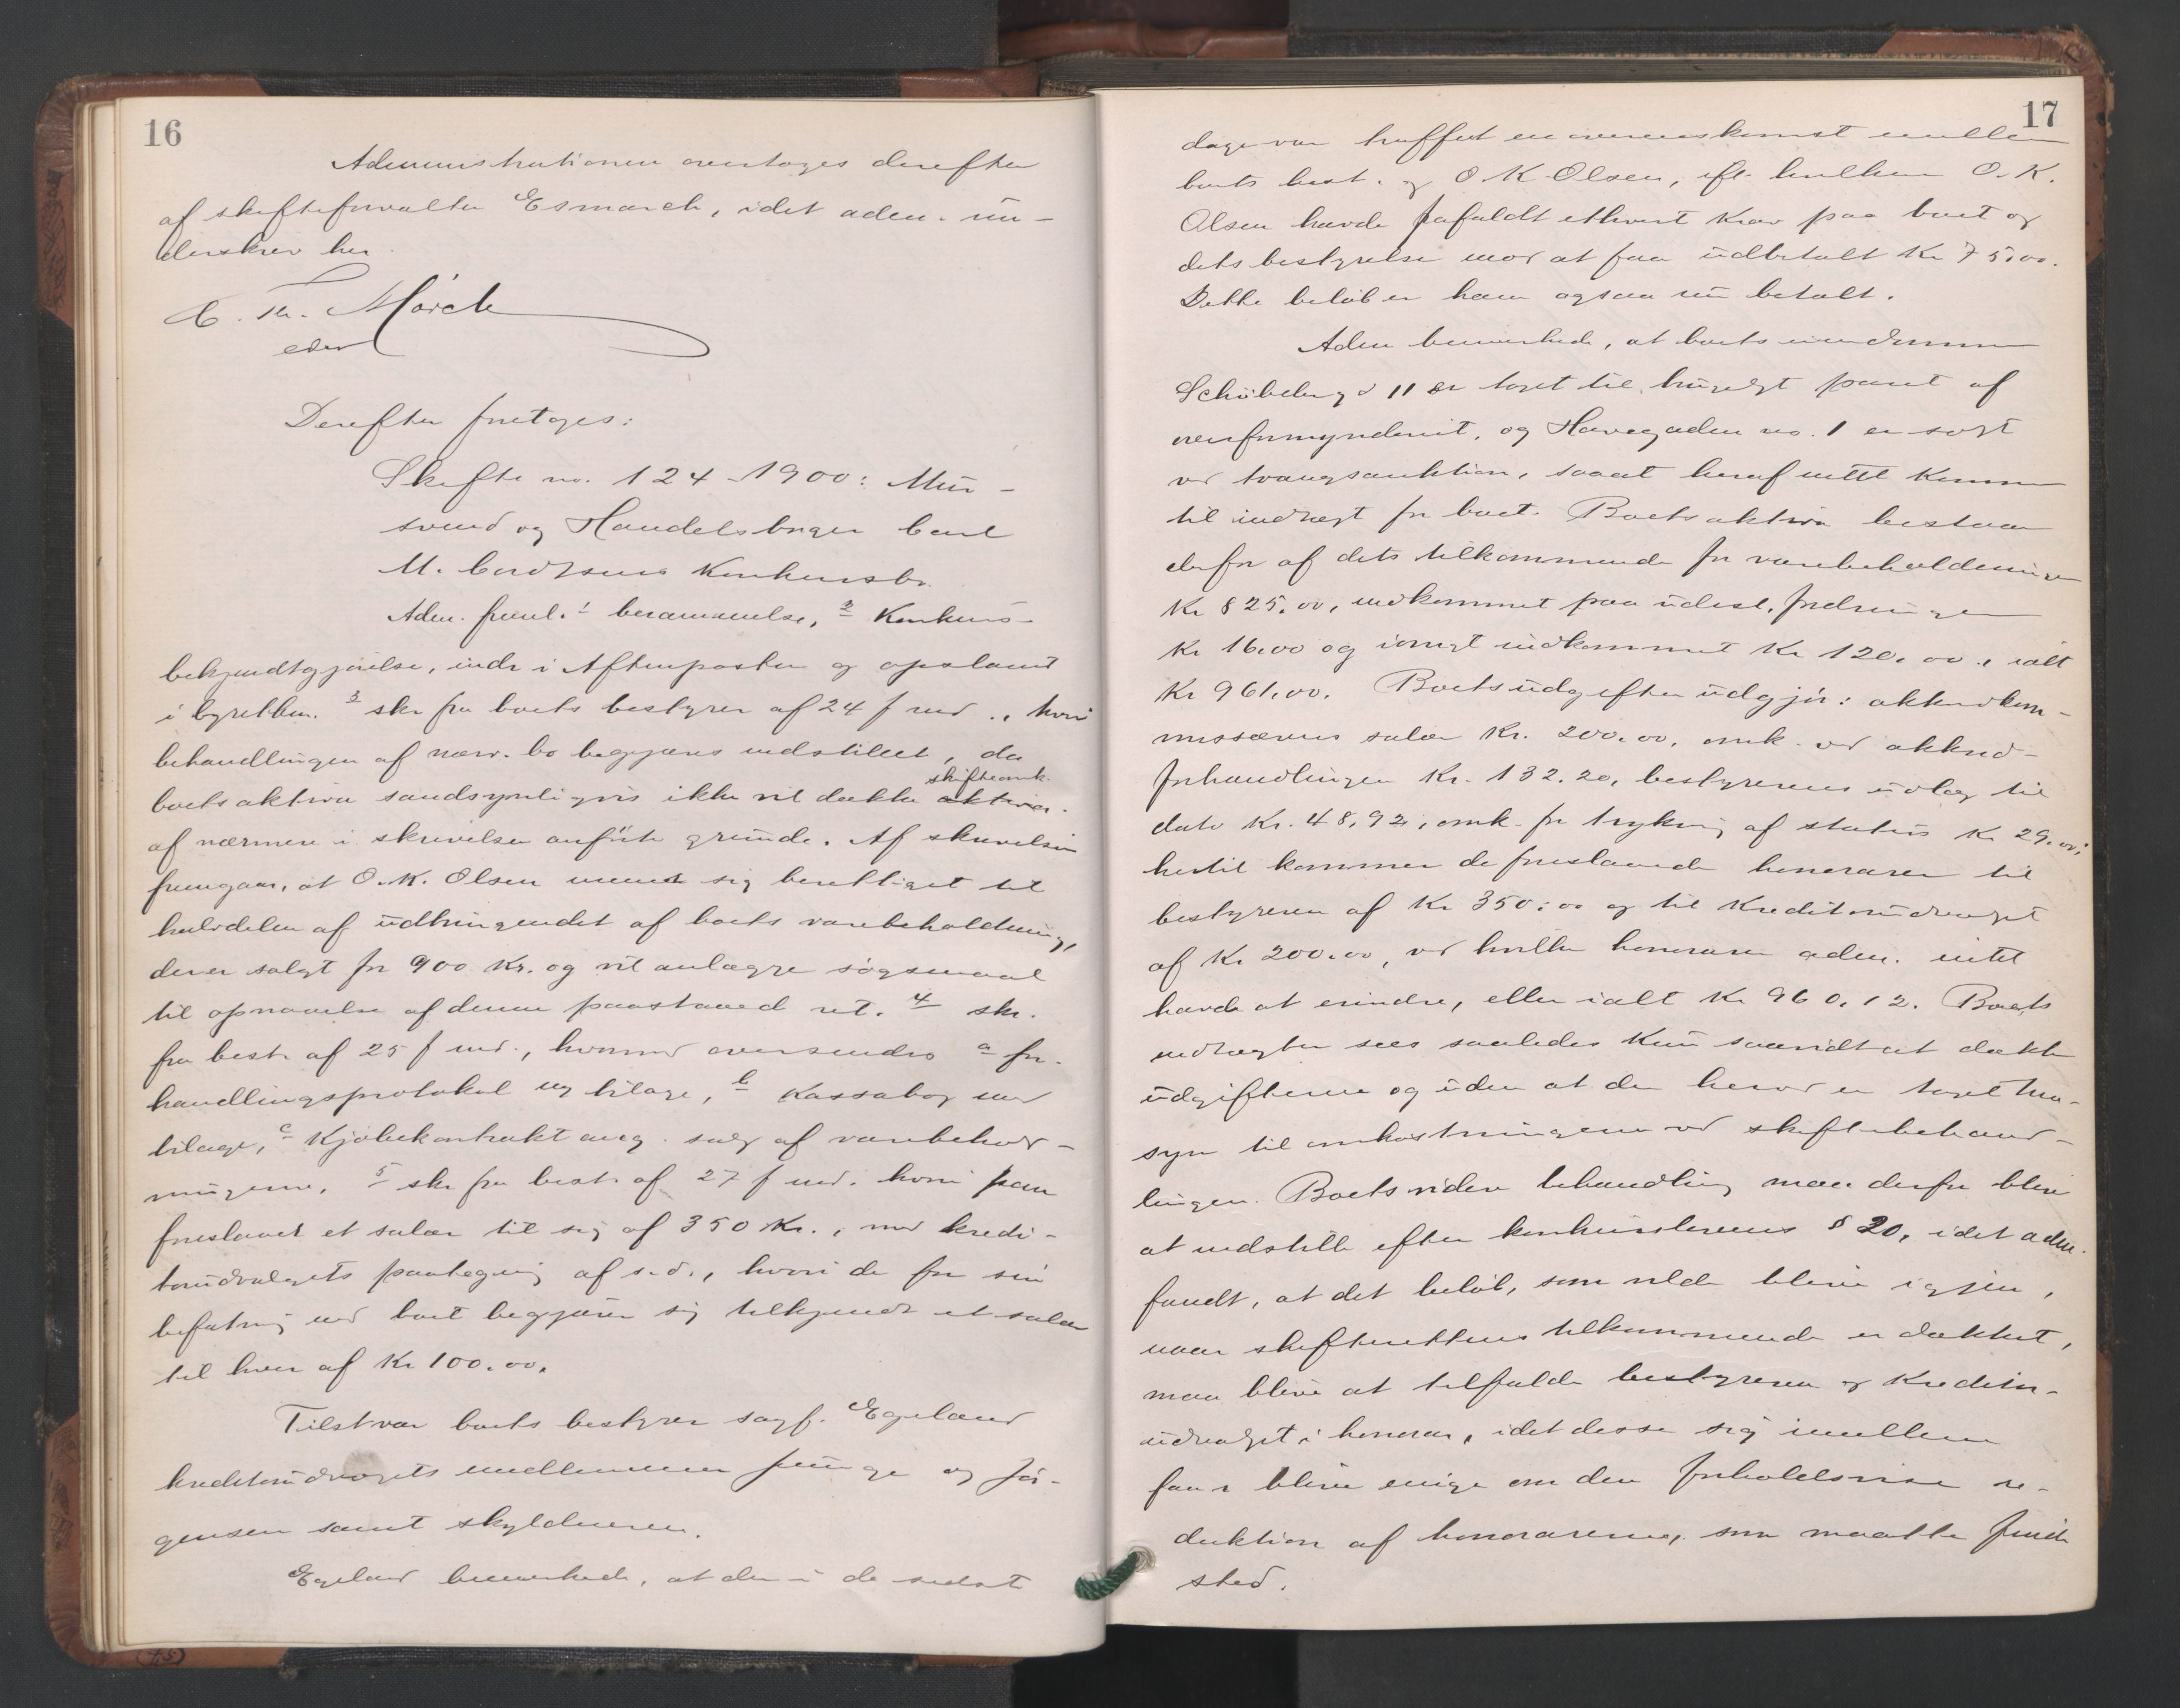 16
Administrationen overtoges derefter
af skifteforvalter Esmarch, idet adm. un-
derskrev her.
C. Th. Mörch
edsv
Derefter foretoges:
Skifte no. 124-1900: Mur-
svend og Handelsborger Carl
M. Cordtsens Konkursbo.
Adm. freml. 1 berammelse, 2 Konkurs-
bekjendtgjörelse, indr. i Aftenposten og opslaaet
i byretten. 3 skr. fra boets bestyrer af 24 f. md., hvori
behandlingen af nærv. bo begjæres indstillet, da
boets aktiva sandsynligvis ikke vil dække skifteomk.
af nærmere i skrivelsen anförte grunde. Af skrivelsen
fremgaar, at O. K. Olsen mener sig berettiget til
halvdelen af udbringendet af boets varebeholdning,
der er solgt for 900 Kr. og vil anlægge sögsmaal
til opnaaelse af denne paastaaed ret. 4 skr.
fra best. af 25 f. md., hvormed oversendes a for-
handlingsprotokol og bilage, b Kassabog med
bilage, c Kjöbekontrakt ang. salg af varebehold-
ningerne. 5 skr. fra best. af 27 f. md. hvori han
foreslaaet et salær til sig af 350 Kr., med kredi-
torudvalgets paategning af s. d., hvori de for sin
befatning med boet begjærer sig tilkjendt et salær
til hver af Kr 100.00.
Tilst. var boets bestyrer sagf. Egeland
kreditorudvalgets medlemmer Junge og Jör-
gensen samt skyldneren.
Egeland bemerkede, at der i de sidste
17
dage var truffet en overenskomst mellem
boets best. og O K Olsen, eft. hvilken O. K.
Olsen havde frafaldt ethvert krav paa boet og
dets bestyrelse mod at faa udbetalt Kr 75,00.
Dette belöb er ham ogsaa nu betalt.
Adm bemerkede, at boets eiendomme
Schübelergd 11 er taget til brugeligt pant af
overformynderiet, og Havegaden no. 1 er solgt
ved tvangsauktion, saaat heraf intet kommer
til indtægt for boet. Boets aktiva bestaar
derfor af dets tilkommende for varebeholdningen
Kr 825.00, indkommet paa udest. fordringer
Kr 16.00 og iövrigt indkommet Kr 120.00, ialt
Kr 961.00. Boets udgifter udgjör: akkordkom-
missærens salær Kr. 200.00, omk. ved akkord-
forhandlingen Kr. 132.20, bestyrerens udlæg til
dato Kr. 48,92, omk. for trykning af status Kr 29.00;
hertil kommer de foreslaaede honorarer til
bestyreren af Kr 350.00 og til Kreditorudvalget
af Kr 200.00, ved hvilke honorarer adm. intet
havde at erindre, eller ialt Kr 960.12. Boets
indtægter sees saaledes Kun saavidt at dække
udgifterne og uden at der herved er taget hen-
syn til omkostningerne ved skiftebehand-
lingen. Boets videre behandling maa derfor blive
at indstille efter konkurslovens § 20, idet adm.
fandt, at det belöb, som vilde blive igjen,
naar skifterettens tilkommende er dækket,
maa blive at tilfalde bestyreren og Kreditor-
udvalget i honorar, idet disse sig imellem
faar blive enige om den forholdsvise re-
duktion af honorarerne, som maatte finde
sted.